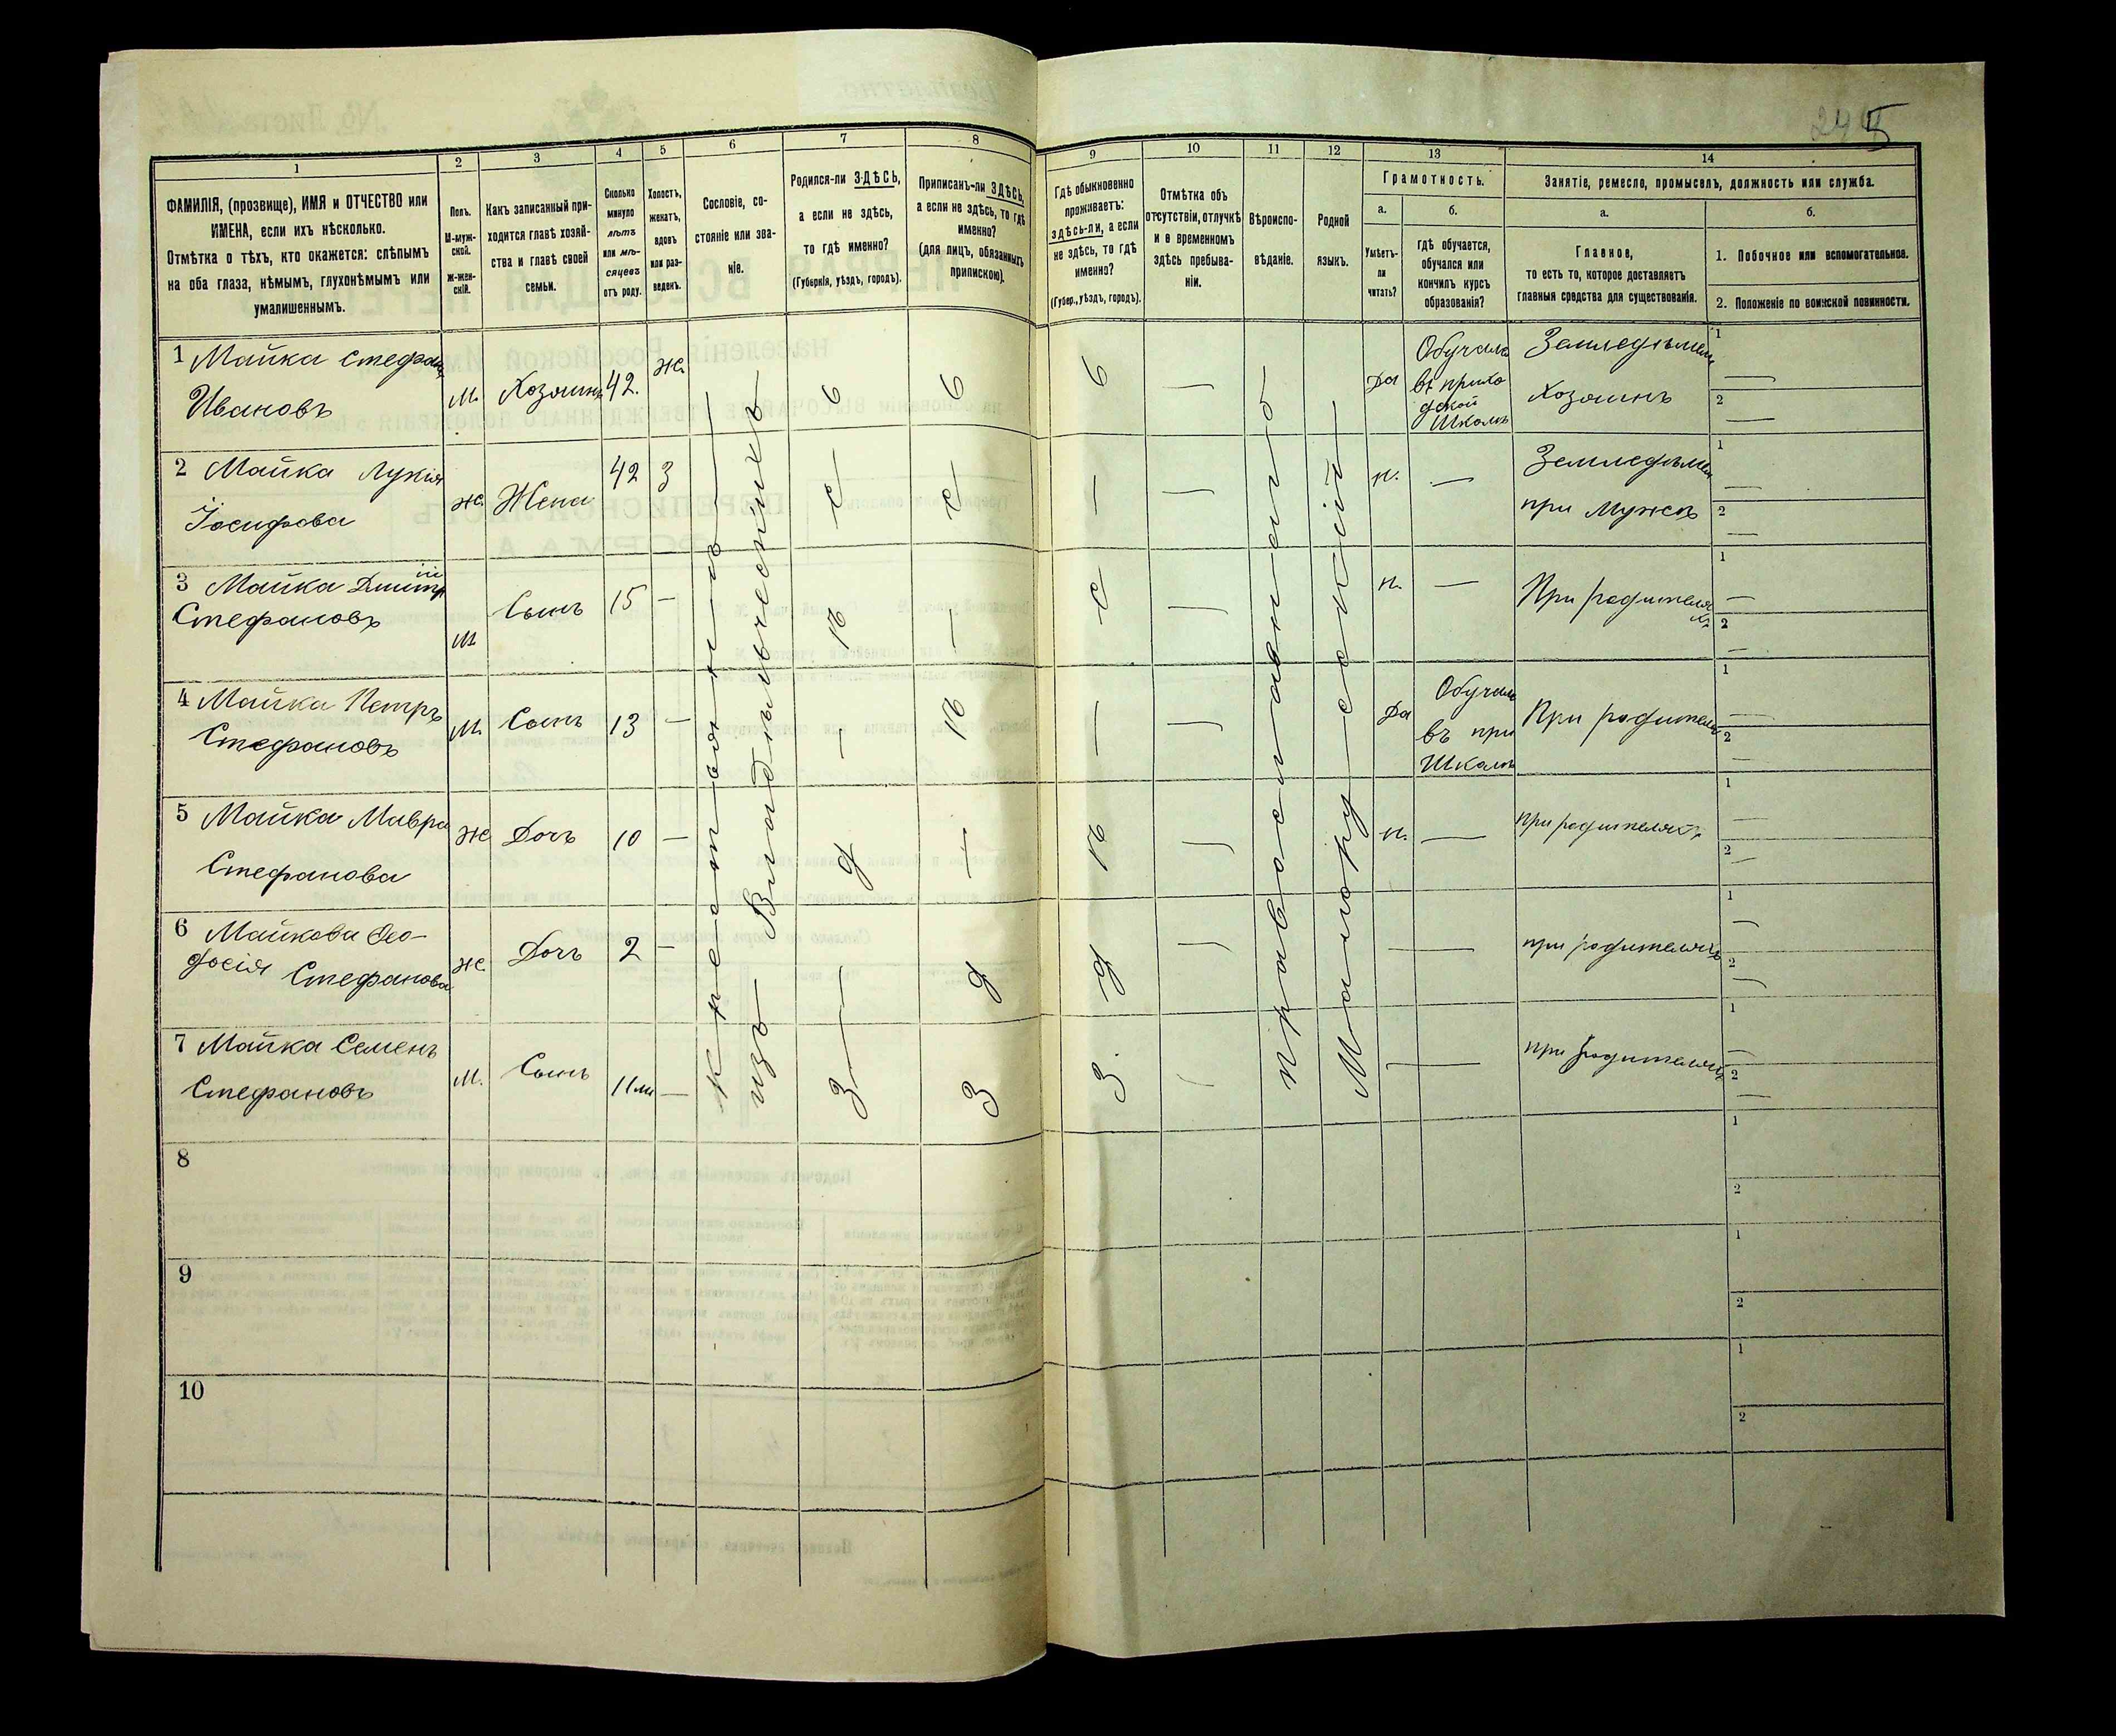 245
1 2 3 4 5 6 7 8 9 10 11 12 13 14
ФАМИЛІЯ, (прозвище), ИМЯ и ОТЧЕСТВО или
ИМЕНА, если ихъ нѣсколько.
Отмѣтка о тѣхъ, кто окажется: слѣпымъ
на оба глаза, нѣмымъ, глухонѣмымъ или
умалишеннымъ.
Полъ.
М-муж-
ской.
Ж-жен-
скій.
Какъ записанный при-
ходится главѣ хозяй-
ства и главѣ своей
семьи.
Сколько
минуло
лѣтъ
или мѣ-
сяцевъ
отъ роду.
Холостъ,
женатъ,
вдовъ
или раз-
веденъ.
Сословіе, со-
стояніе или зва-
ніе.
Родился-ли ЗДѢСЬ,
а если не здѣсь,
то гдѣ именно?
(Губернія, уѣздъ, городъ).
Приписанъ-ли ЗДѢСЬ,
а если не здѣсь, то гдѣ
именно?
(для лицъ, обязанныхъ
припискою).
Гдѣ обыкновенно
проживаетъ:
здѣсь-ли, а если
не здѣсь, то гдѣ
именно?
(Губер., уѣздъ, городъ).
Отмѣтка объ
отсутствіи, отлучкѣ
и о временномъ
здѣсь пребыва-
ніи.
Вѣроиспо-
вѣданіе.
Родной
языкъ.
Грамотность.
а.
Умѣетъ-
ли
читать?
б.
гдѣ обучается,
обучался или
кончилъ курсъ
образованія?
Занятіе, ремесло, промыселъ, должность или служба.
а.
Главное,
то есть то, которое доставляетъ
главныя средства для существованія.
б.
1. Побочное или вспомогательное.
2. Положеніе по воинской повинности.
1 Майка Стефанъ
Ивановъ
М.
Хозяинъ
42.
ж.
Да
Обучался
въ прихо
дской
Школѣ
Земледѣлецъ
Хозяинъ
1
2
2 Майка Лукія
Іосифова
ж.
Жена
42
З
н.
—
Земледѣлец
при Мужѣ
1
2
3 Майка Дмитрій
Стефановъ
М
Сынъ
15
—
н.
—
При родителях
1
2
4 Майка Петръ
Стефановъ
М.
Сынъ
13
—
Да
Обучал
въ при
Школѣ
При родителях
1
2
5 Майка Мавра
Стефанова
Ж
Дочь
10
—
н.
—
при родителяхъ
1
2
6 Майкова Фео-
досія Стефанова
ж.
Дочь
2
—
—
при родителяхъ
1
2
7 Майка Семенъ
Стефановъ
М.
Сынъ
11 м
—
—
при родителяхъ
1
2
изъ Владѣльческихъ
здѣсь
здѣсь
здѣсь
православный
Малорусскій
8
1
2
9
1
2
10
1
2